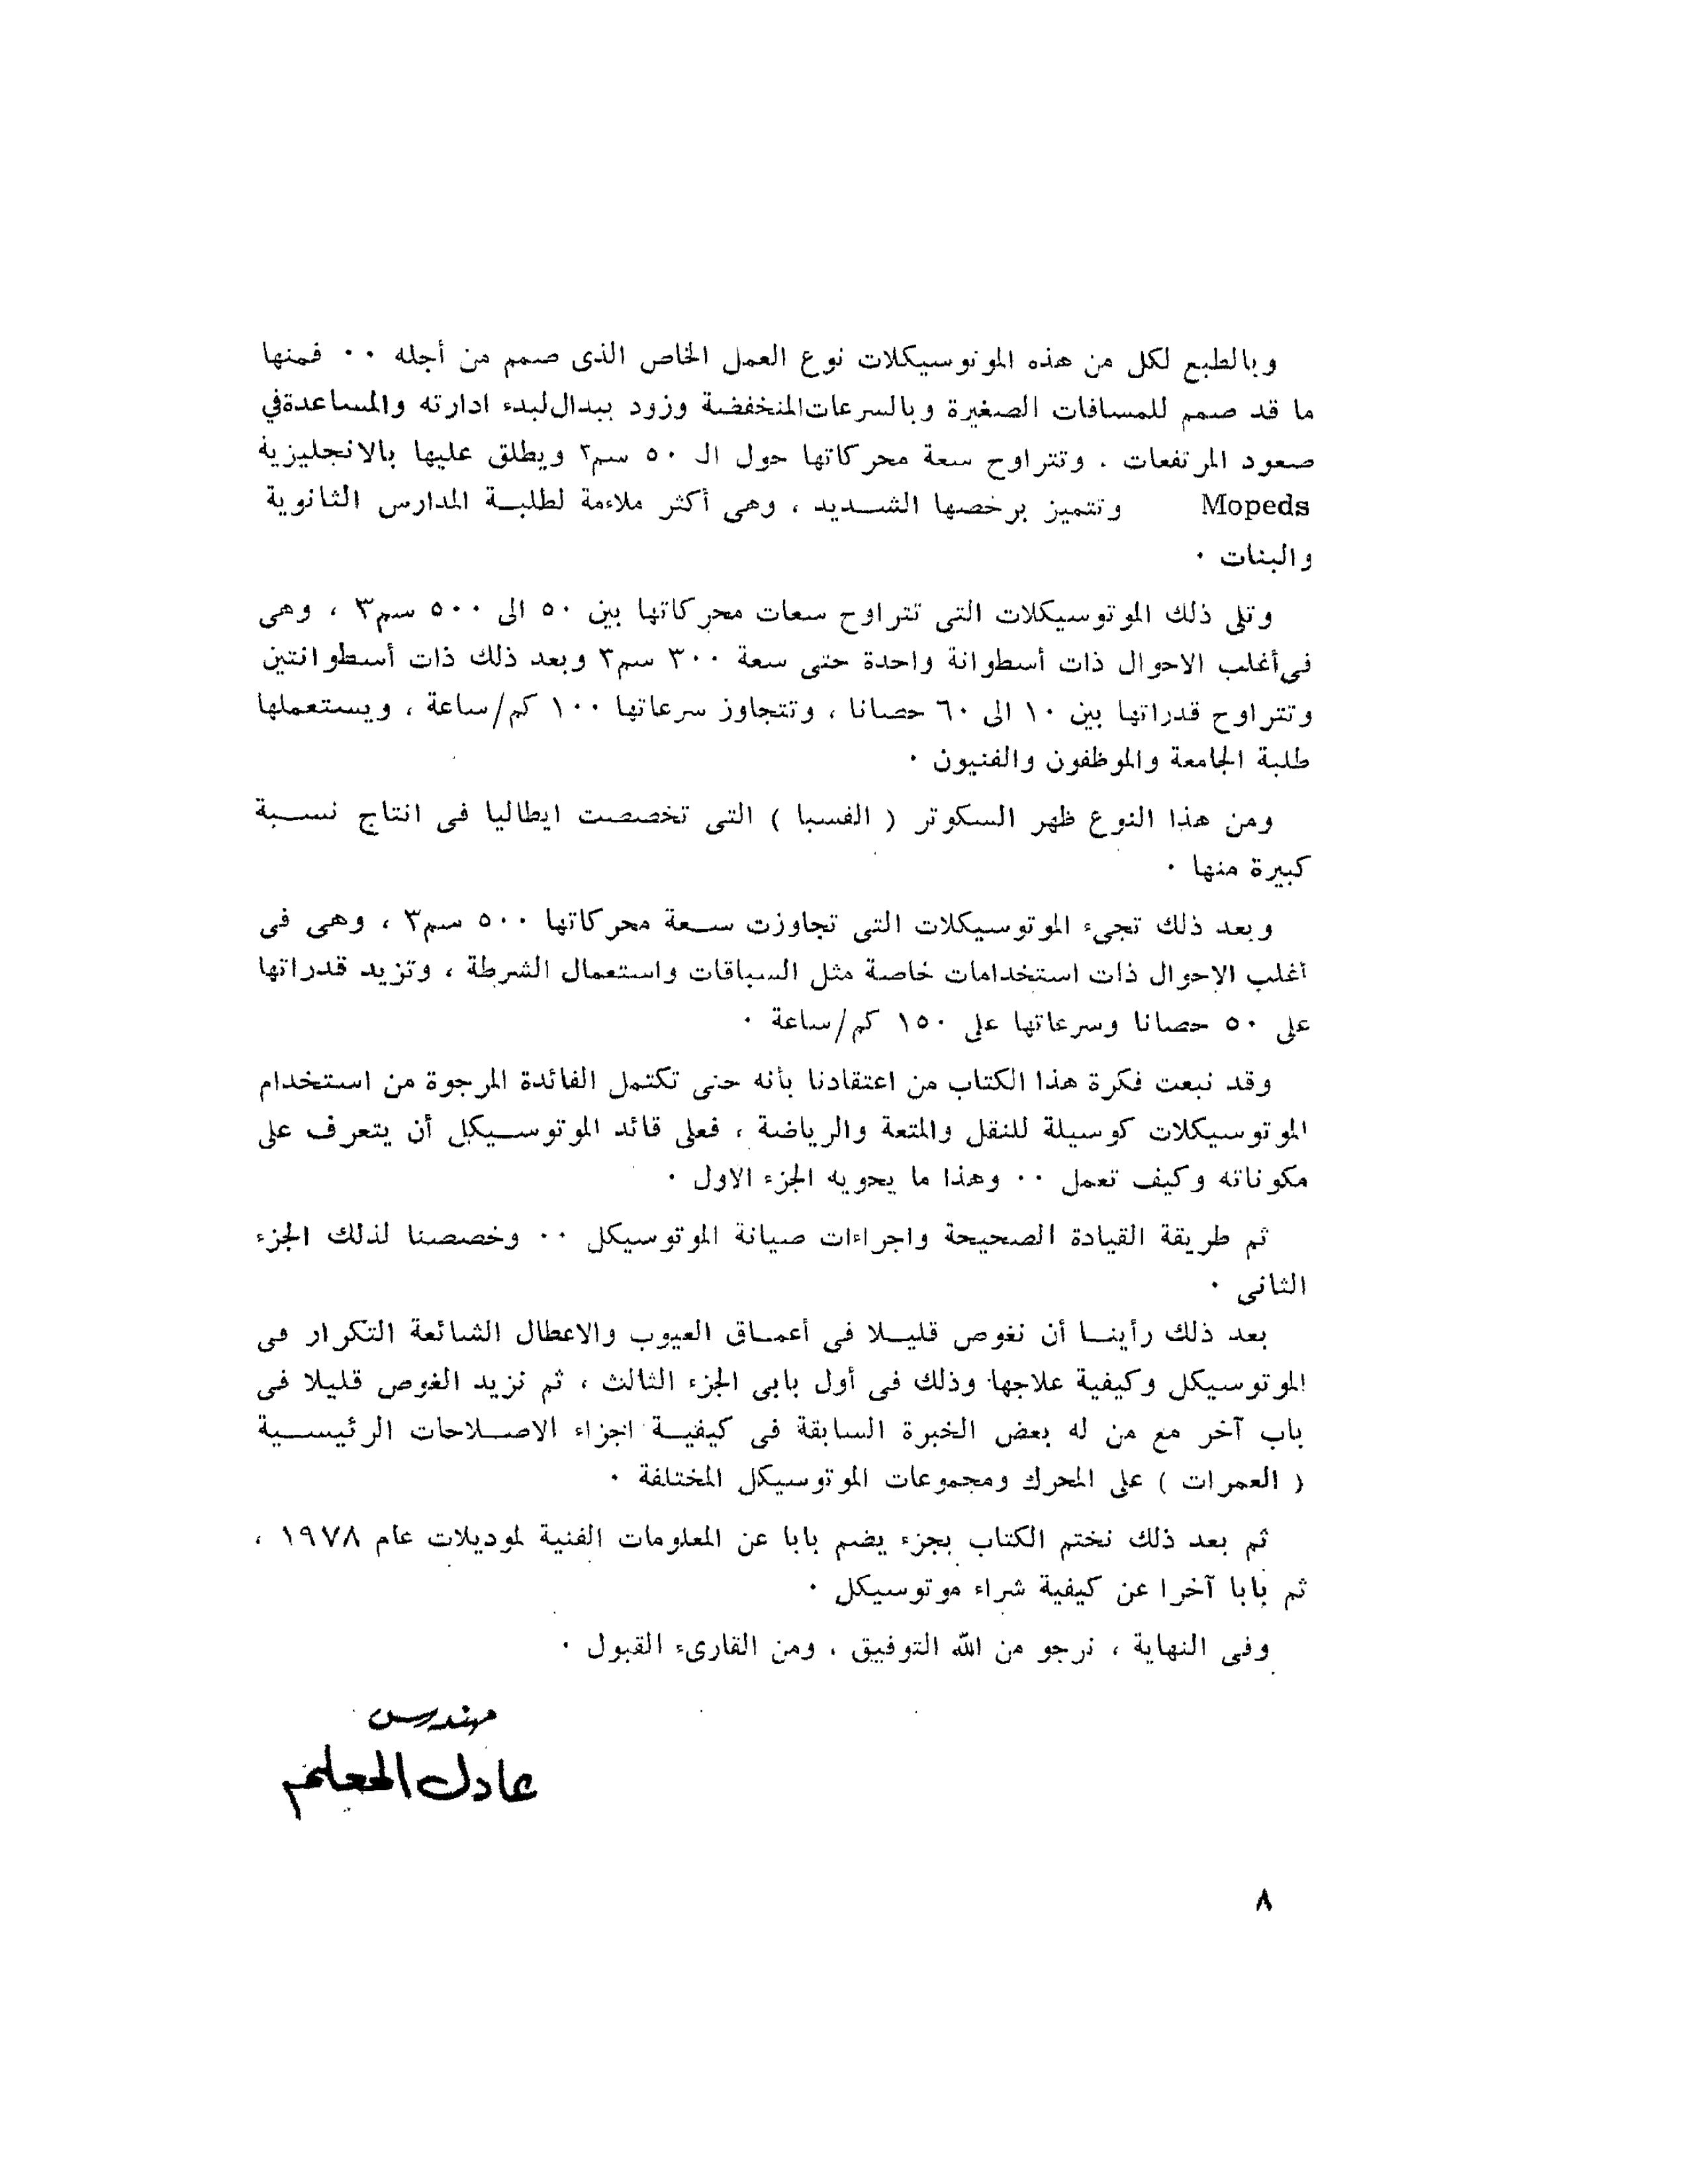 وبالطبع لكل من هذه الموتوسيكلات نوع العمل الخاص الذى صمم من أجله ٠٠ فمنها
ما قد صمم للمسافات الصغيرة وبالسرعات المنخفضة وزود ببدال لبدء ادارته والمساعدة في
صعود المرتفعات . وتتراوح سعة محركاتها حول الـ ٥٠ سم٣ ويطلق عليها بالانجليزية
Mopeds وتتميز برخصها الشــديد ، وهى أكثر ملاءمة لطلبــة المدارس الثانوية
والبنات ٠
وتلى ذلك الموتوسيكلات التى تتراوح سعات محركاتها بين ٥٠ الى ٥٠٠ سم٣ ، وهى
فى أغلب الاحوال ذات أسطوانة واحدة حتى سعة ٣٠٠ سم٣ وبعد ذلك ذات أسطوانتين
وتتراوح قدراتها بين ١٠ الى ٦٠ حصانا ، وتتجاوز سرعاتها ١٠٠ كم/ساعة ، ويستعملها
طلبة الجامعة والموظفون والفنيون ٠
ومن هذا النوع ظهر السكوتر ( الفسبا ) التى تخصصت ايطاليا فى انتاج نســبة
كبيرة منها ٠
وبعد ذلك تجىء الموتوسيكلات التى تجاوزت ســعة محركاتها ٥٠٠ سم٣ ، وهى فى
أغلب الاحوال ذات استخدامات خاصة مثل السباقات واستعمال الشرطة ، وتزيد قدراتها
على ٥٠ حصانا وسرعاتها على ١٥٠ كم/ساعة ٠
وقد نبعت فكرة هذا الكتاب من اعتقادنا بأنه حتى تكتمل الفائدة المرجوة من استخدام
الموتوسيكلات كوسيلة للنقل والمتعة والرياضة ، فعلى قائد الموتوســيكل أن يتعرف على
مكوناته وكيف تعمل ٠٠ وهذا ما يحويه الجزء الاول ٠
ثم طريقة القيادة الصحيحة واجراءات صيانة الموتوسيكل ٠٠ وخصصنا لذلك الجزء
الثانى ٠
بعد ذلك رأينــا أن نغوص قليــلا فى أعمــاق العيوب والاعطال الشائعة التكرار فى
الموتوسيكل وكيفية علاجها وذلك فى أول بابى الجزء الثالث ، ثم نزيد الغوص قليلا فى
باب آخر مع من له بعض الخبرة السابقة فى كيفيــة اجزاء الاصــلاحات الرئيســية
( العمرات ) على المحرك ومجموعات الموتوسيكل المختلفة ٠
ثم بعد ذلك نختم الكتاب بجزء يضم بابا عن المعلومات الفنية لموديلات عام ١٩٧٨ ،
ثم بابا آخرا عن كيفية شراء موتوسيكل ٠
وفى النهاية ، نرجو من الله التوفيق ، ومن القارىء القبول ٠
مهندس
عادل المعلم
٨